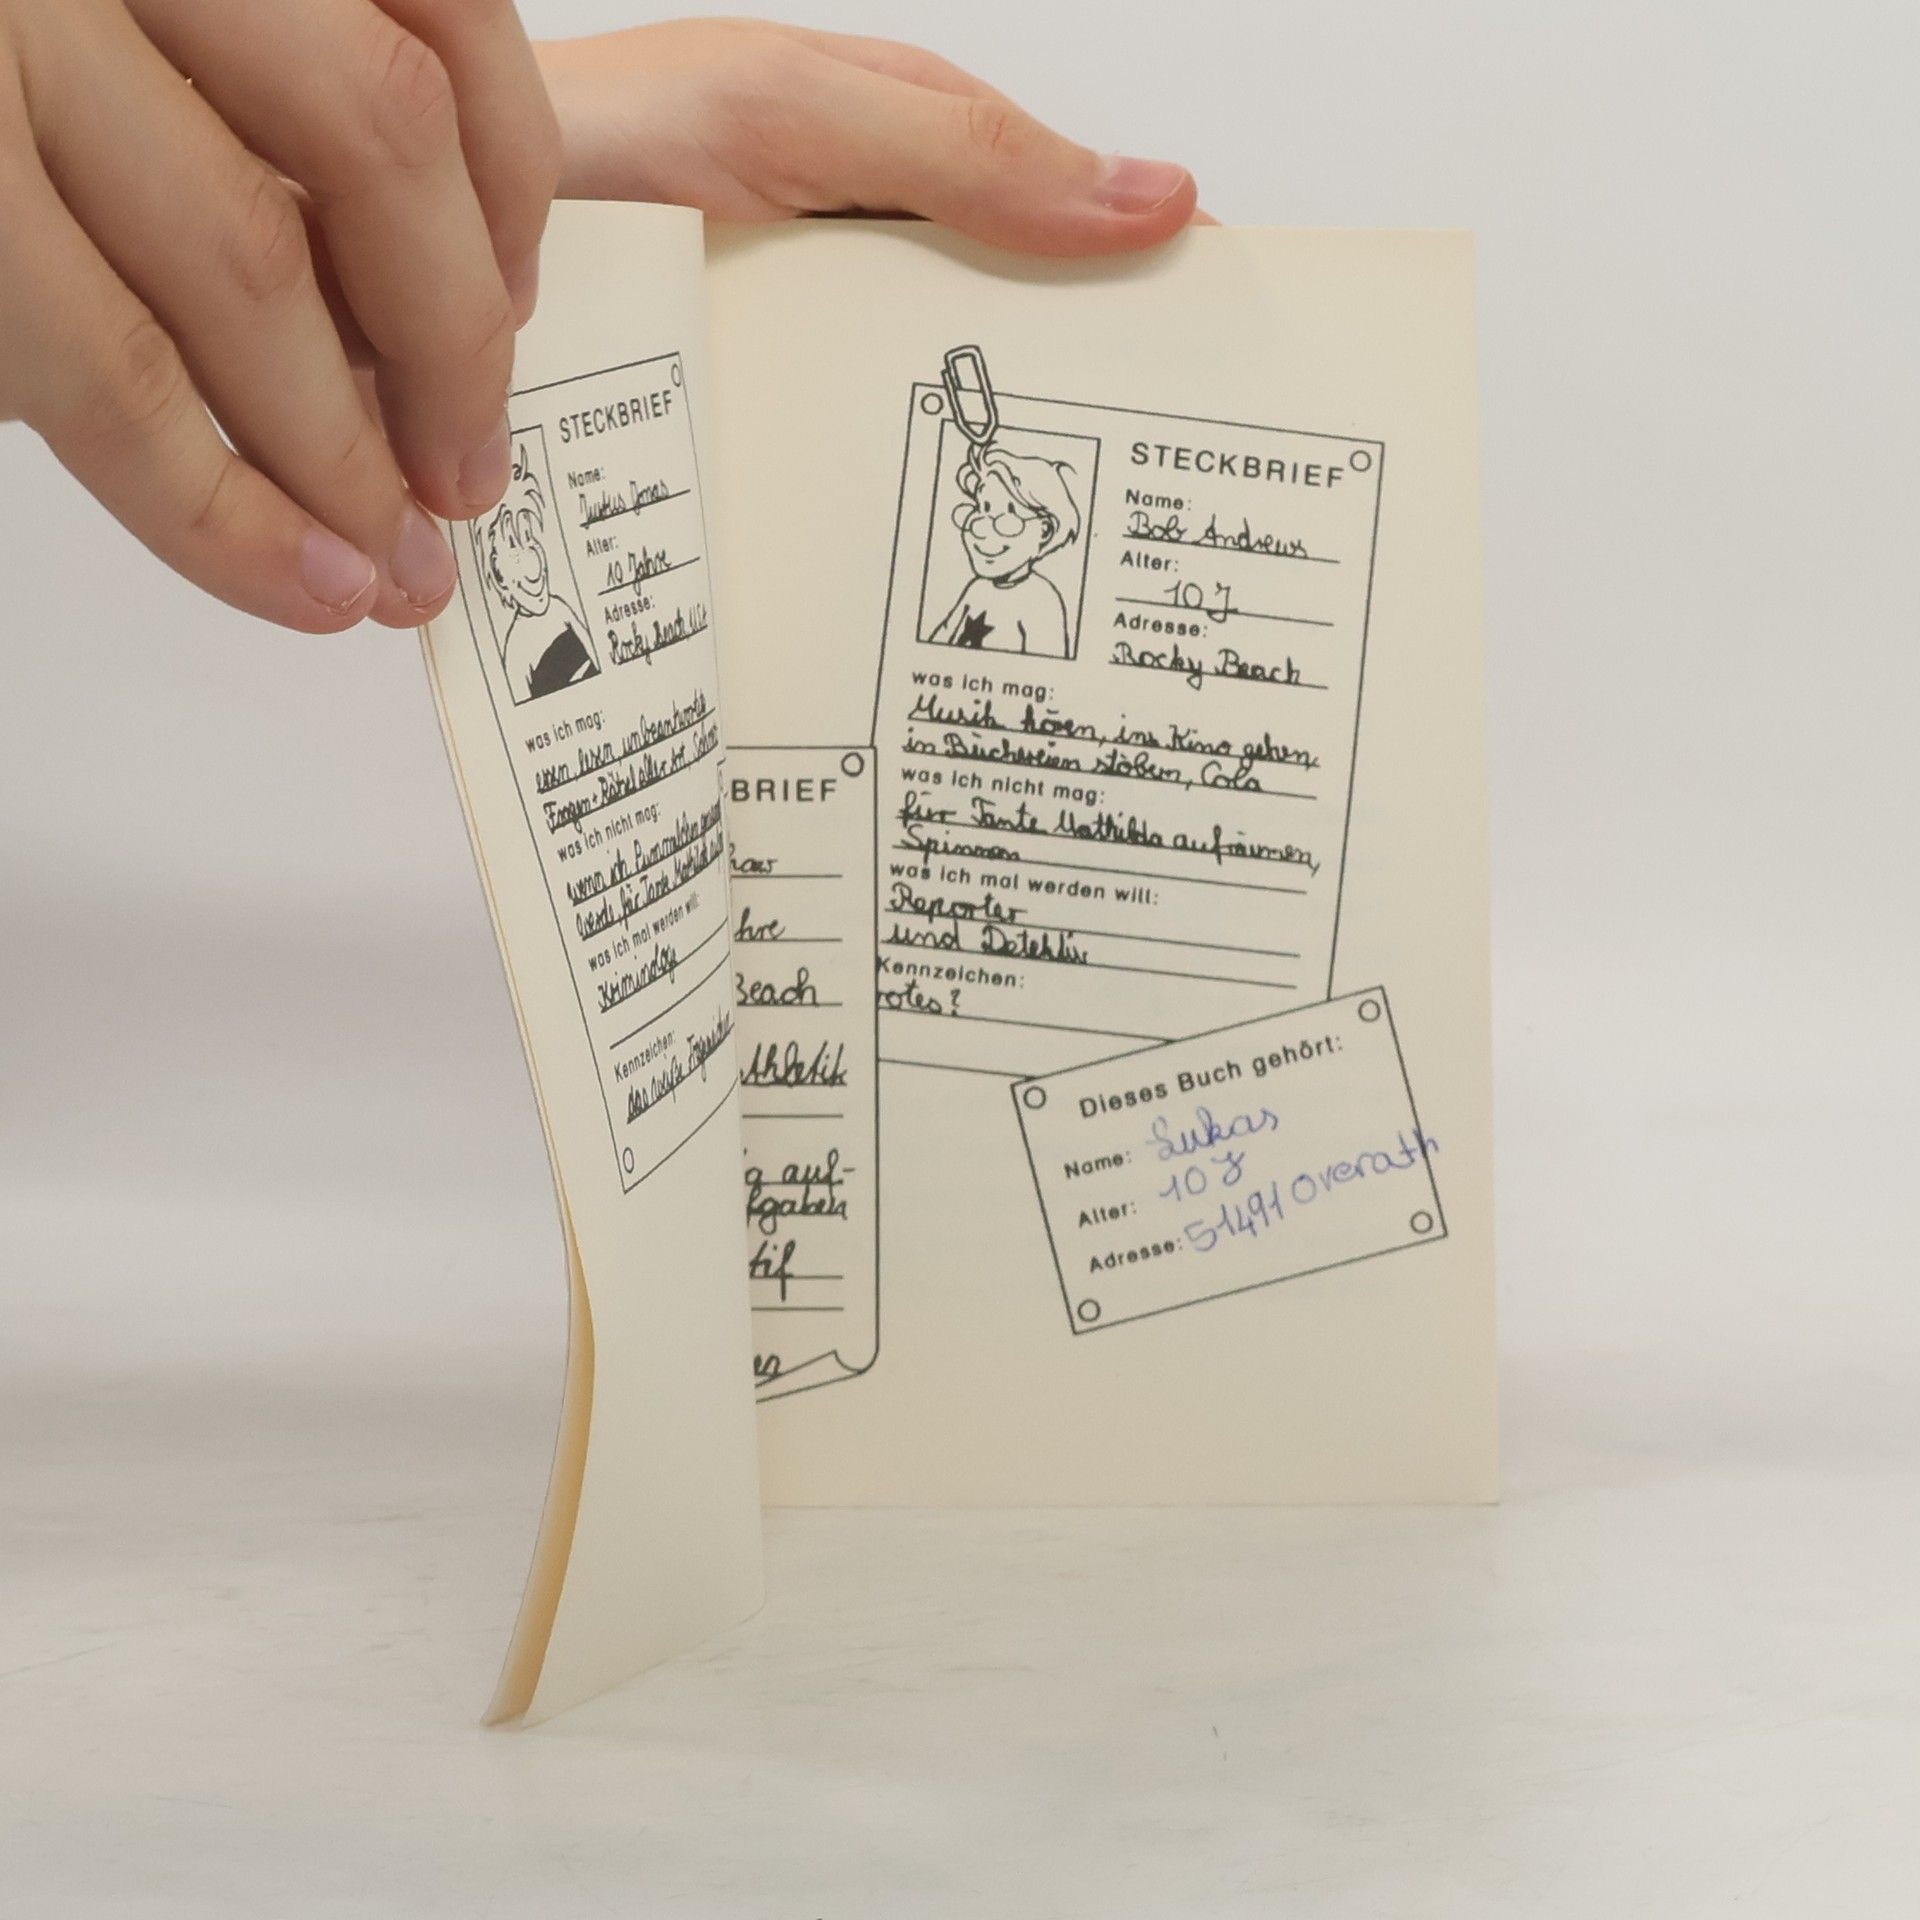 STECKBRIEF
Name:
Justus Jonas
Alter:
10 Jahre
Adresse:
Rocky Beach, USA
was ich mag:
essen, lesen, unbeantwortete
Fragen + Rätsel aller Art, Schrott
was ich nicht mag:
wenn ich Pummelchen genannt
werde, für Tante Mathilda
was ich mal werden will:
Kriminologe
Kennzeichen:
das weiße Fragezeichen
BRIEF
haw
hre
Beach
athletik
auf-
fgaben
tif
en
STECKBRIEF
Name:
Bob Andrews
Alter:
10 J
Adresse:
Rocky Beach
was ich mag:
Musik hören, ins Kino gehen,
in Büchereien stöbern, Cola
was ich nicht mag:
für Tante Mathilda aufräumen,
Spinnen
was ich mal werden will:
Reporter
und Detektiv
Kennzeichen:
rotes ?
Dieses Buch gehört:
Name: Lukas
Alter: 10 J
Adresse: 51491 Overath